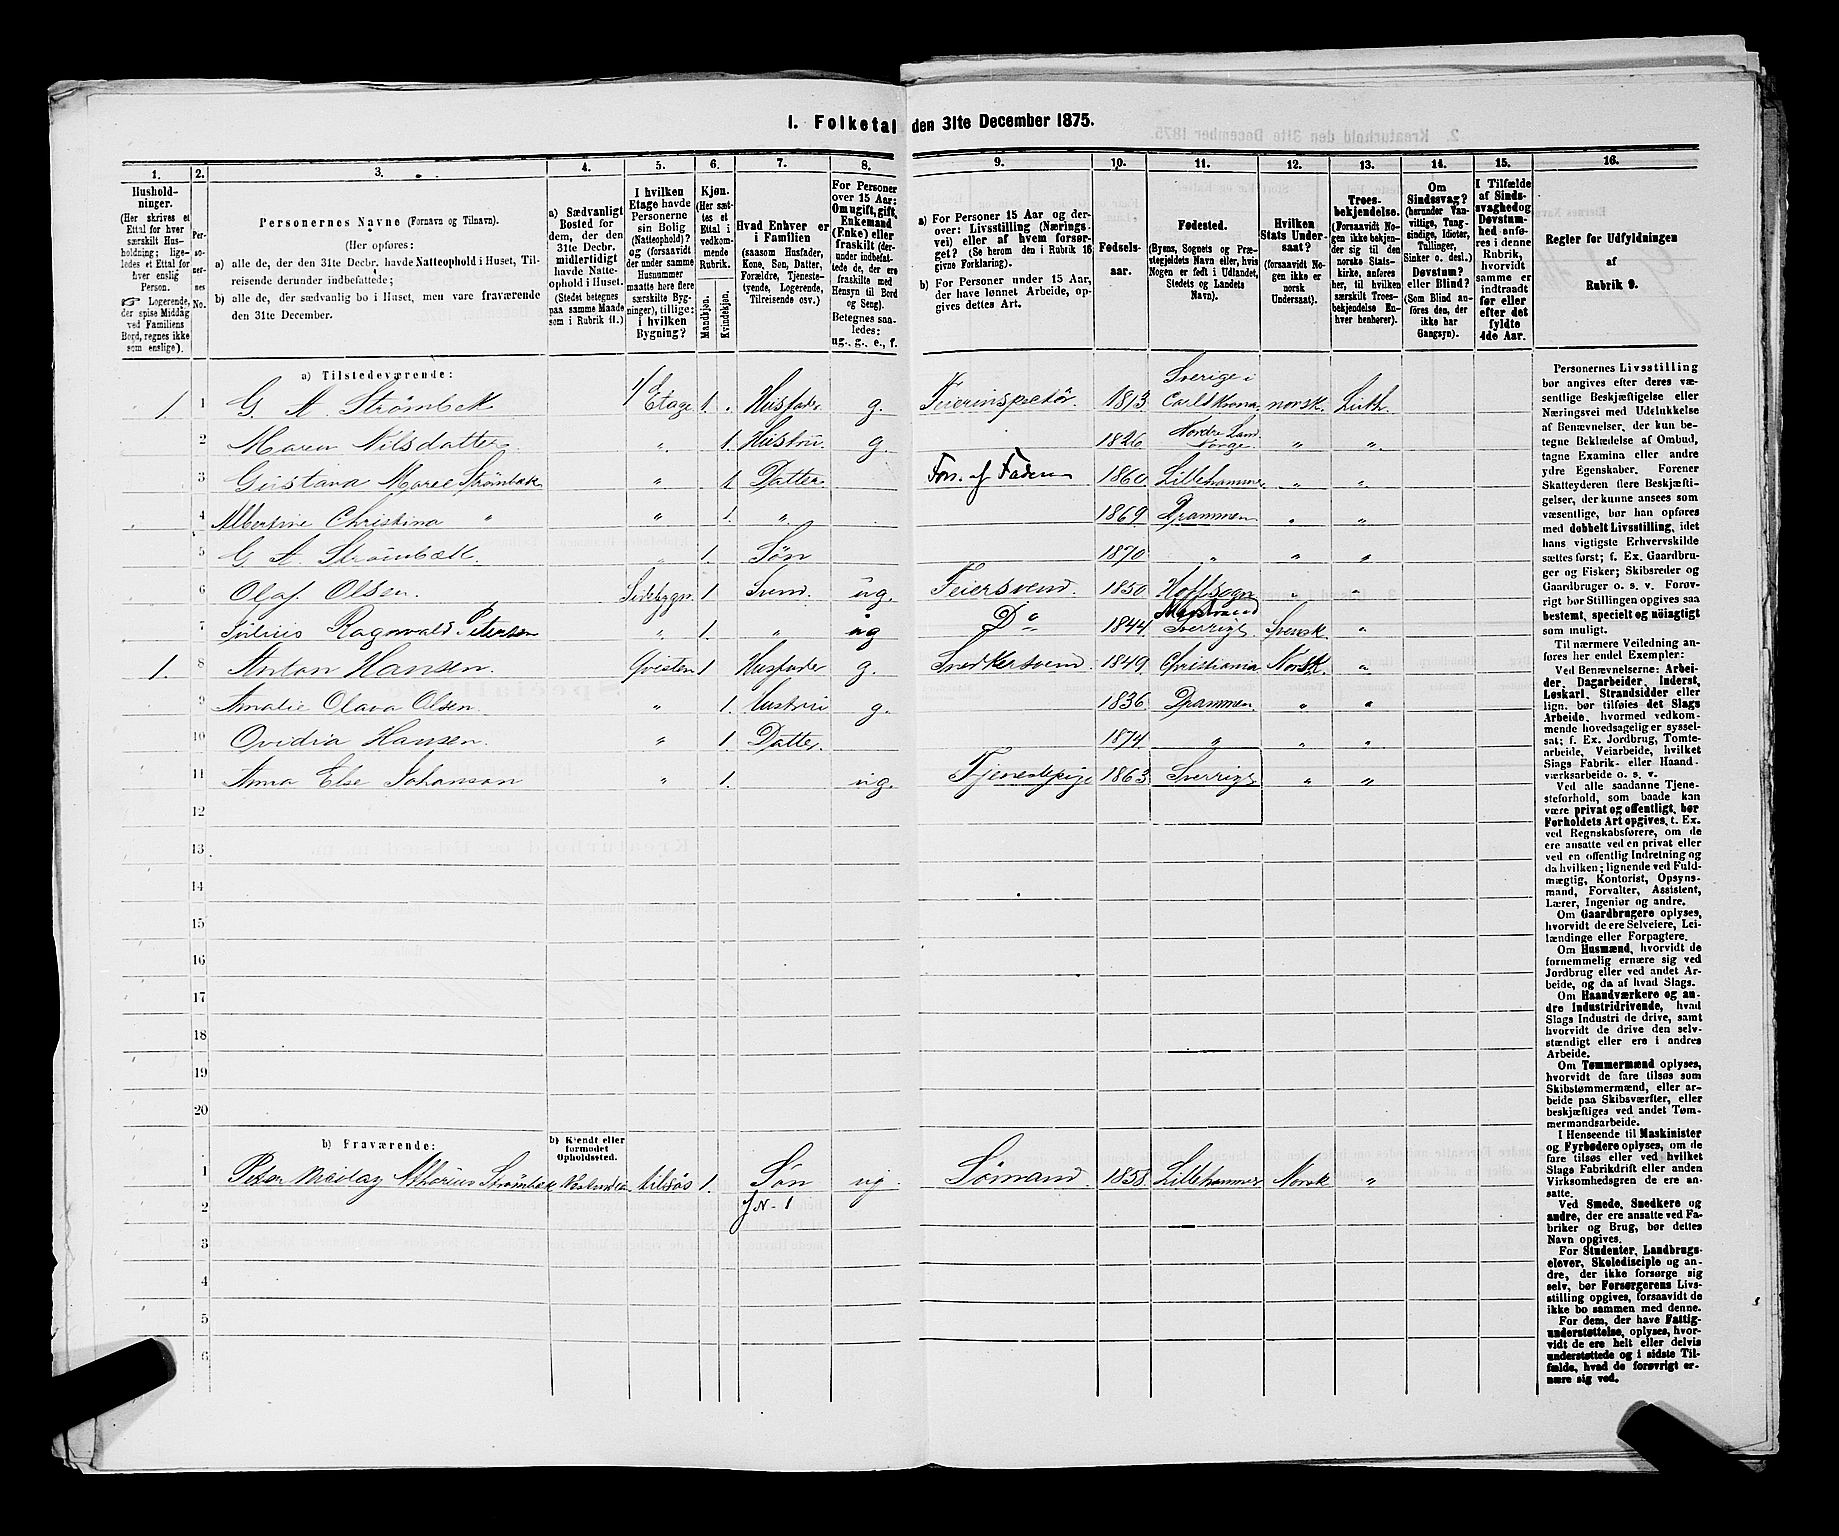 1. Folketal den 31te December 1875.
1.
2.
3.
4.
5.
6.
7.
8.
9.
10.
11.
12.
13.
14.
15.
16.
Husholdninger.
(Her skrives et
Ettal for hver
særskilt Husholdning;
ligeledes et Ettal for
hver enslig
Person.
☞ Logerende,
der spise Middag
ved Familiens
Bord, regnes ikke
som enslige).
Personernes No.
Personernes Navne (Fornavn og Tilnavn).
(Her opføres:
a) alle de, der den 31te Decbr. havde Natteophold i Huset, Tilreisende derunder indbefattede;
b) alle de, der sædvanlig bo i Huset, men vare fraværende
den 31te December.
a) Sædvanligt
Bosted for
dem, der den
31te Decbr.
midlertidigt
havde Natteophold
i Huset.
(Stedet betegnes
paa samme Maade
som i Rubrik 11.)
I hvilken
Etage havde
Personerne
sin Bolig
(Natteophold)?
og (forsaavidt
der under samme
Husnummer
maatte høre flere
særskilte Bygninger),
tillige:
i hvilken
Bygning?
Kjøn.
(Her sættes
et
Ettal i
vedkommende
Rubrik.
Mandkjøn.
Kvindekjøn.
Hvad Enhver er
i Familien
(saasom Husfader,
Kone, Søn, Datter,
Forældre, Tjenestetyende,
Logerende,
Tilreisende osv.)
For Personer
over 15 Aar:
Om ugift, gift,
Enkemand
(Enke) eller
fraskilt (derunder
indbefattede
de, der ere
fraskilte med
Hensyn til Bord
og Seng).
Betegnes saaledes:
ug., g., e., f.
a) For Personer 15 Aar og derover:
Livsstilling (Næringsvei)
eller af hvem forsørget?
(Se herom den i Rubrik 16
givne Forklaring).
b) For Personer under 15 Aar,
der have lønnet Arbeide, opgives
dettes Art.
Fødselsaar.
Fødested.
(Byens, Sognets og Præstegjeldets
Navn eller, hvis
Nogen er født i Udlandet,
Stedets og Landets
Navn).
Hvilken
Stats Undersaat?
(forsaavidt Nogen
ikke er
norsk
Undersaat).
Troesbekjendelse.
(Forsaavidt Nogen
ikke bekjender
sig til den
norske Statskirke,
anføres
her, til hvilken
særskilt Troesbekjendelse
Enhver
henhører).
Om
Sindssvag?
(herunder Vanvittige,
Tungsindige,
Idioter,
Tullinger,
Sinker o. desl.)
Døvstum?
eller Blind?
(Som Blind anføres
den, der
ikke har
Gangsyn).
I Tilfælde
af Sindssvaghed
og
Døvstumhed
anføres
i denne
Rubrik,
hvorvidt
samme er
indtraadt
før eller
efter det
fyldte
4de Aar.
Regler for Udfyldningen
af
Rubrik 9.
a) Tilstedeværende:
1. 1 G. A. Strømbæk 1/ Etage 1. Husfader g. Feierinspektør. 1813. Sverige i Carlskrona norsk. Luth.
2 Maren Nilsdatter „ 1. Hustru. g. 1826 Nordre Land Norge „ „
3 Gustava Marie Strømbæk „ 1. Datter Fors. af Faderen 1860 Lillehammer „ „
4 Albertine Christina „ „ 1. „ 1869. Drammen „ „
5 G. A. Strømbæk. „ 1. Søn 1870. „ „ „
6 Olaf Olsen. Sidebygn. 1. Svend. ug. Feiersvend. 1850 Hoffsogn „ „
7 Julius Ragnvald Petersen „ 1. „ ug Do 1844. Marstrand Sverrige Svensk. „
1. 8 Anton Hansen. Qvisten 1. Husfader g. Snedkersvend. 1849. Christiania Norsk. „
9 Amalie Olava Olsen. „ 1. Hustru g. 1836. Drammen. „ „
10 Ovidia Hansen. „ 1. Datter. 1874. „ „ „
11 Anna Else Johanson „ 1. ug. Tjenestepige 1863. Sverrige „ „
12
13
14
15
16
17
18
19
20
b) Fraværende:
b) Kjendt eller
formodet
Opholdssted.
1 Peter Nicolay Strømbæk tilsøs 1. Søn ug. Sømand. 1858. Lillehammer Norsk „
2 f N- 1
3
4
5
6
Personernes Livsstilling
bør angives efter deres væsentlige
Beskjæftigelse eller
Næringsvei med Udelukkelse
af Benævnelser, der kun betegne
Beklædelse af Ombud,
tagne Examina eller andre
ydre Egenskaber. Forener
Skatteyderen flere Beskjæftigelser,
der kunne ansees som
væsentlige, bør han opføres
med dobbelt Livsstilling, idet
hans vigtigste Erhvervskilde
sættes først; f. Ex. Gaardbruger
og Fisker; Skibsreder og
Gaardbruger o. s. v. Forøvrigt
bør Stillingen opgives saa
bestemt, specielt og nöiagtigt
som muligt.
Til nærmere Veiledning anføres
her endel Exempler:
Ved Benævnelserne: Arbeider,
Dagarbeider, Inderst,
Løskarl, Strandsidder eller
lign. bør tilføies det Slags
Arbeide, hvormed vedkommende
hovedsagelig er sysselsat;
f. Ex. Jordbrug, Tomtearbeide,
Veiarbeide, hvilket
Slags Fabrik- eller Haandværksarbeide
o. s. v.
Ved alle saadanne Tjenesteforhold,
som baade kan
være privat og offentligt, bør
Forholdets Art opgives, t. Ex.
ved Regnskabsførere, om de
ere ansatte ved en privat eller
ved en offentlig Indretning og
da hvilken; lignende ved Fuldmægtig,
Kontorist, Opsynsmand,
Forvalter, Assistent,
Lærer, Ingeniør og andre.
Om Gaardbrugere oplyses,
hvorvidt de ere Selveiere, Leilændinge
eller Forpagtere.
Om Husmænd, hvorvidt de
fornemmelig ernære sig ved
Jordbrug eller ved andet Arbeide,
og da af hvad Slags.
Om Haandværkere og andre
Industridrivende, hvad
Slags Industri de drive, samt
hvorvidt de drive den selvstændigt
eller ere i andres
Arbeide.
Om Tømmermænd oplyses,
hvorvidt de fare tilsøs som
Skibstømmermænd, eller arbeide
paa Skibsværfter, eller
beskjæftiges ved andet Tømmermandsarbeide.
I Henseende til Maskinister
og Fyrbødere oplyses, om de
fare tilsøs eller ved hvilket
Slags Fabrikdrift eller anden
Virksomhedsgren de ere ansatte.
Ved Smede, Snedkere og
andre, der ere ansatte ved Fabriker
og Brug, bør dettes
Navn opgives.
For Studenter, Landbrugselever,
Skoledisciple og andre,
der ikke forsørge sig
selv, bør Forsørgerens Livsstilling
opgives, forsaavidt de
ikke bo sammen med denne.
For dem, der have Fattigunderstøttelse,
oplyses, hvorvidt
de ere helt eller delvis
understøttede og i sidste Tilfælde,
hvad de forøvrigt ernære
sig ved.